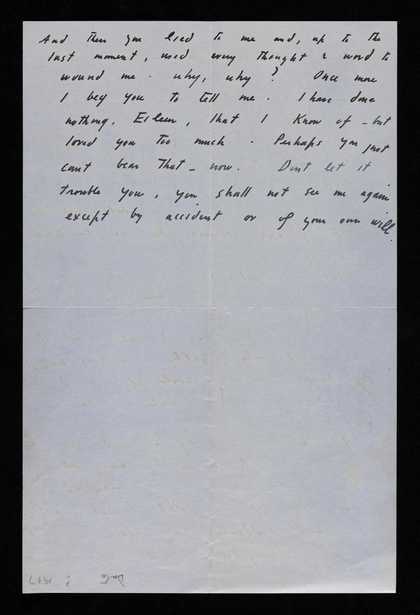 And then you lied to me and, up to the
last moment, used every thought & word to
wound me. Why, why? Once more
I beg you to tell me. I have done
nothing, Eileen, that I know of - but
loved you too much. Perhaps you just
can't bear that - now. Don't let it
trouble you, you shall not see me again
except by accident or of your own will.
Date ? 1947